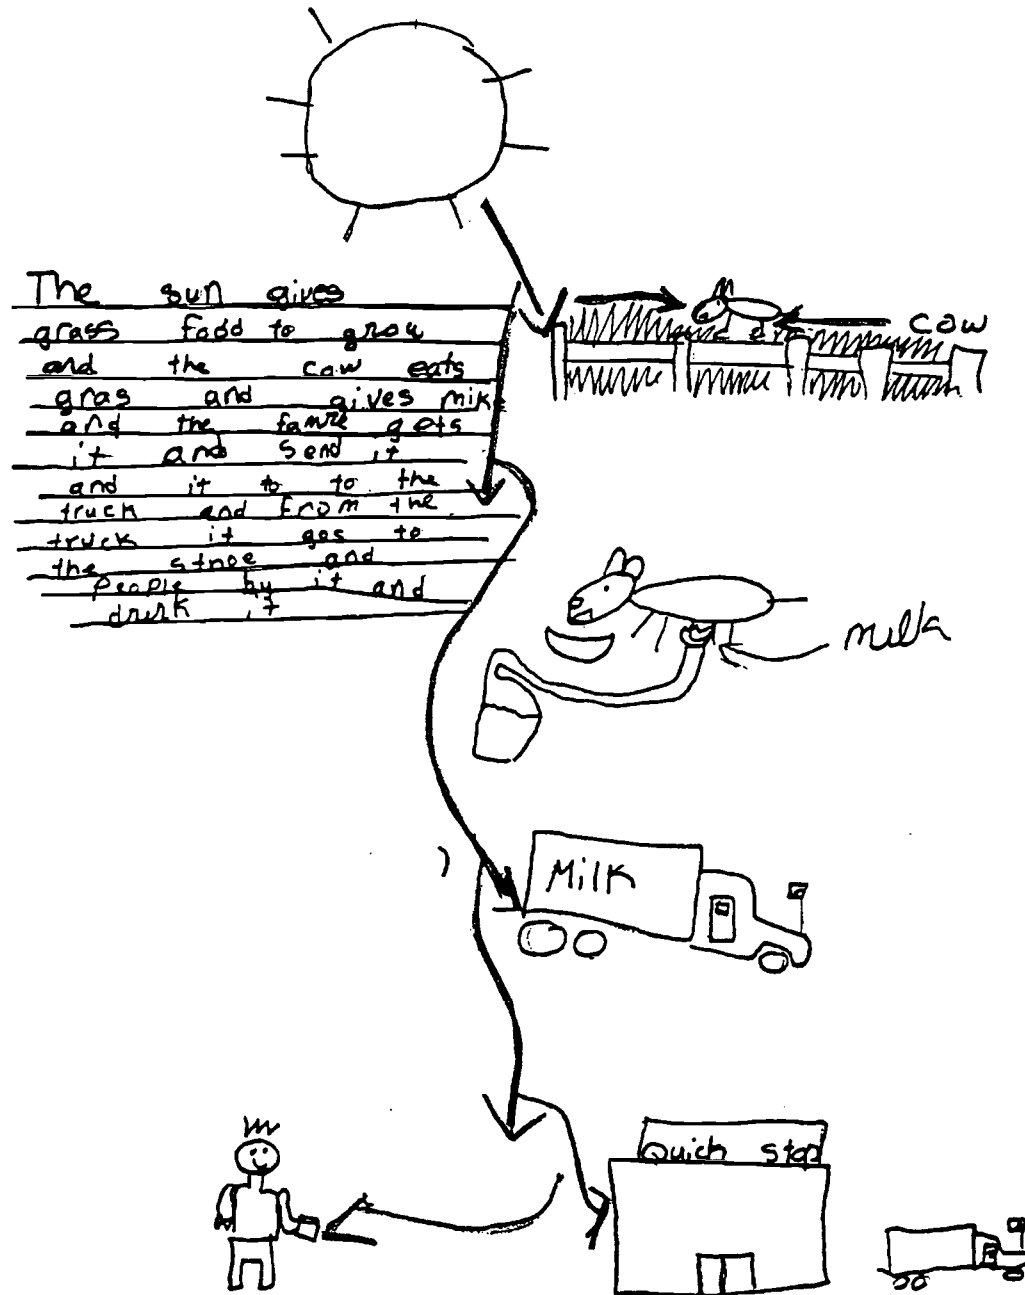 The sun gives
grass fodd to grow
and the cow eats
gras and gives mik
and the famre gets
it and send it
and it to to the
truck and from the
truck it gos to
the stroe and
people by it and
drink it
cow
milk
Milk
Quick stop